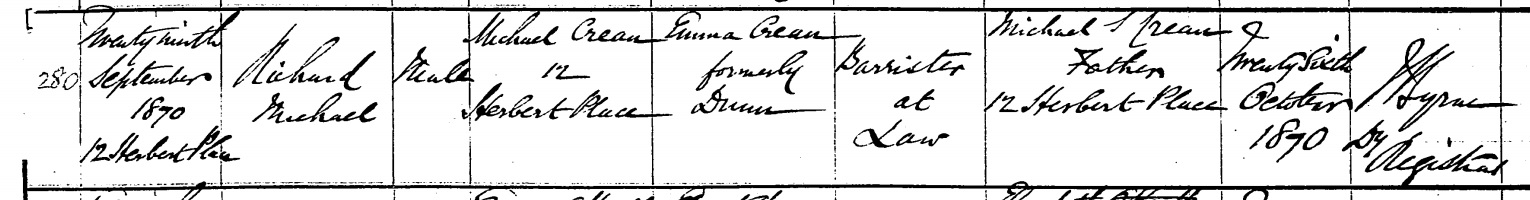 280
Twenty ninth
September
1870
12 Herbert Place
Richard
Michael
Male
Michael Crean
12
Herbert Place
Emma Crean
formerly
Dunn
Barrister
at
Law
Michael T Crean
Father
12 Herbert Place
Twenty Sixth
October
1870
Byrne
Dy
Registrar